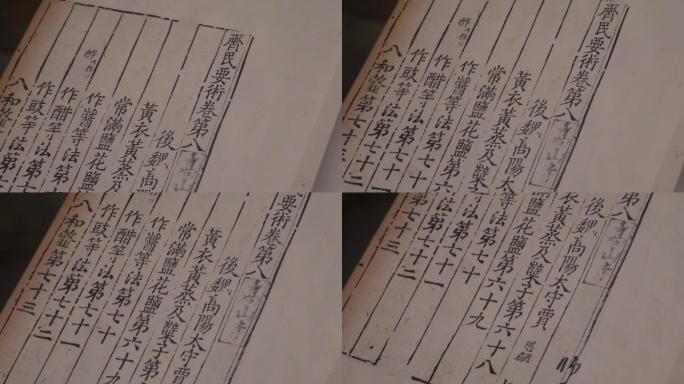 齊民要術卷第八
後魏高
黃衣黃蒸及
常滿鹽花鹽
作醬等法第
作醋等法第
作豉等法第七
八和韲第七十三
齊民要術卷第八
後魏高陽太守
黃衣黃蒸及糵子
常滿鹽花鹽第六
作醬等法第七十
作醋等法第七十一
作豉等法第七十二
八和韲第七十三
要術卷第八
後魏高陽太守賈
黃衣黃蒸及糵子第
常滿鹽花鹽第六十九
作醬等法第七十
作醋等法第七十一
作豉等法第七十二
八和韲第七十三
第八
後魏高陽太守賈
思勰
衣黃蒸及糵子第六十八
滿鹽花鹽第六十九
等法第七十
法第七十一
第七十二
第七十三